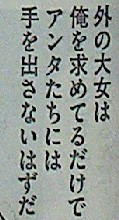 外の大女は
俺を求めてるだけで
アンタたちには
手を出さないはずだ